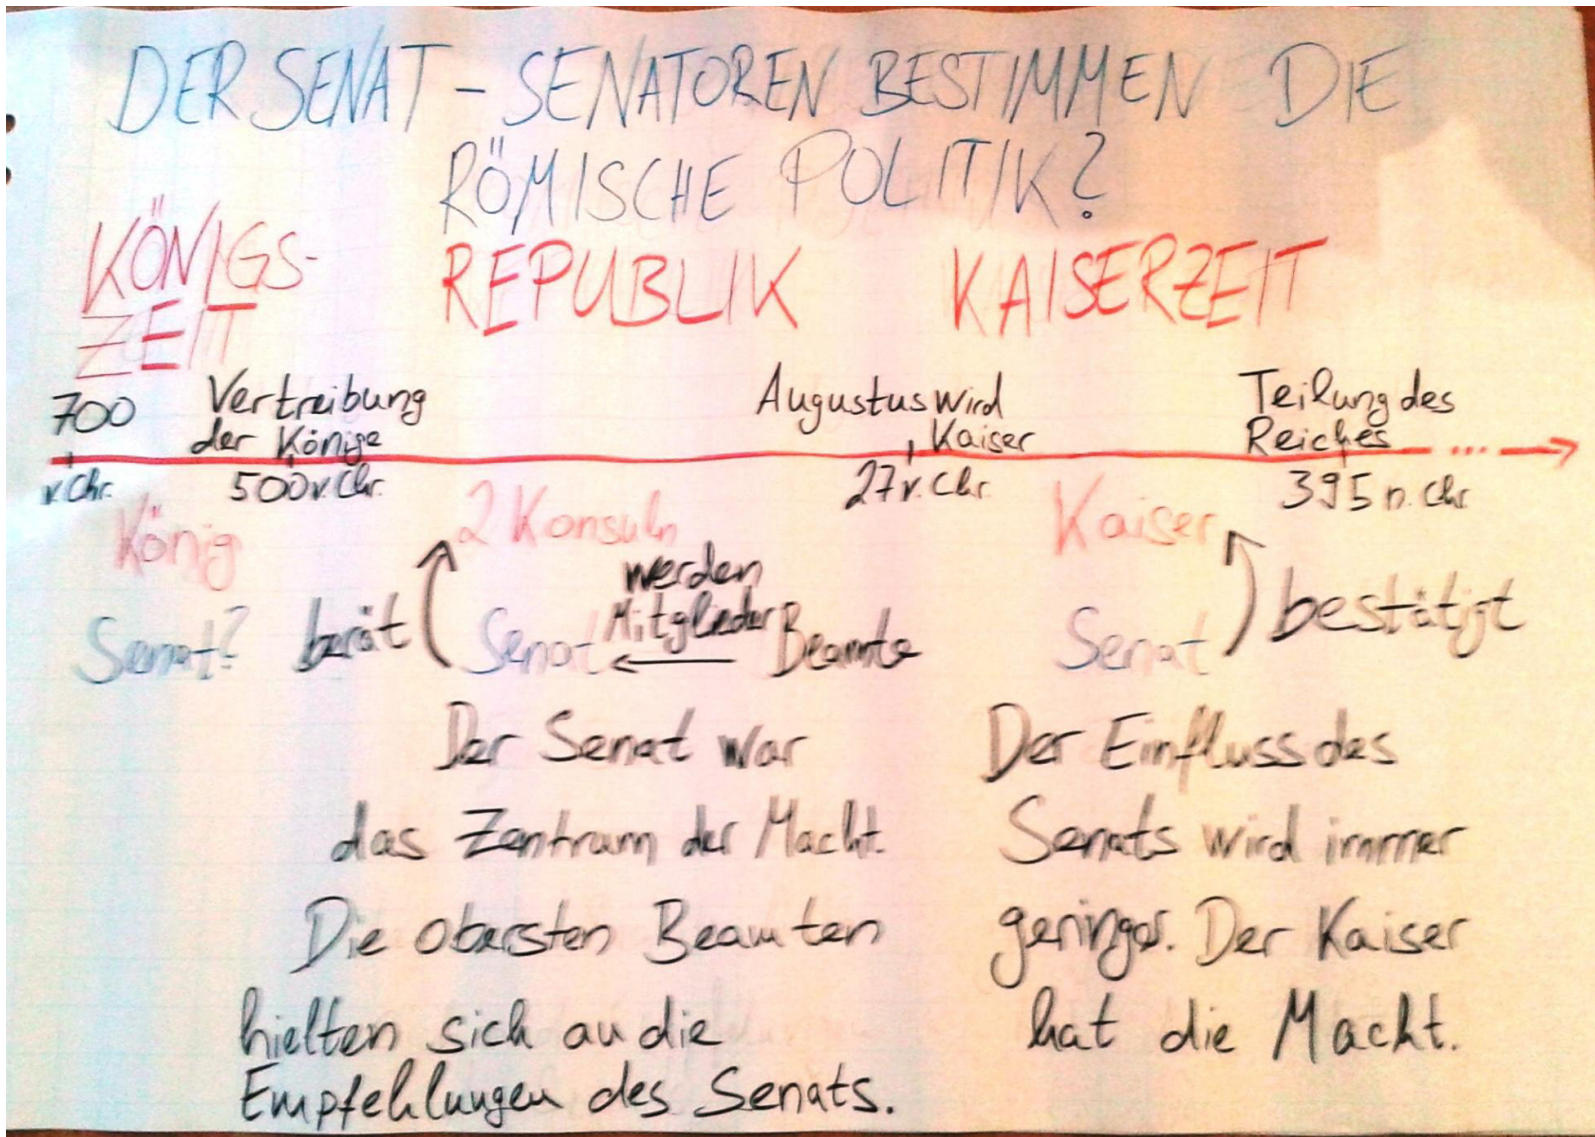 DER SENAT - SENATOREN BESTIMMEN DIE
RÖMISCHE POLITIK?
KÖNIGS-
ZEIT
REPUBLIK
KAISERZEIT
700
v. Chr.
Vertreibung
der Könige
500 v. Chr.
Augustus wird
Kaiser
27 v. Chr.
Teilung des
Reiches
395 n. Chr.
König
Senat?
2 Konsuln
berät
Senat
werden
Mitglieder
Beamte
Kaiser
Senat
bestätigt
Der Senat war
das Zentrum der Macht.
Die obersten Beamten
hielten sich an die
Empfehlungen des Senats.
Der Einfluss des
Senats wird immer
geringer. Der Kaiser
hat die Macht.